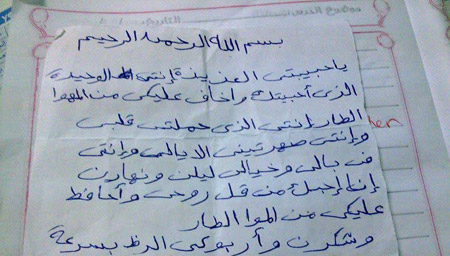 بسم الله الرحمن الرحيم
ياحبيبتي العزيزة إنتي الوحيدة
الذي أحببتك وأخاف عليكي من الهوا
الطار إنتي الذي حملتي قلبي
وإنتي صهرتيني الايالي وإنتي
في بالي وخيالي ليلن ونهارن
إنا أحبك من قل روحي وأحافظ
عليكي من الهوا الطار
وشكرن وأرجوكي الرد بسرعة